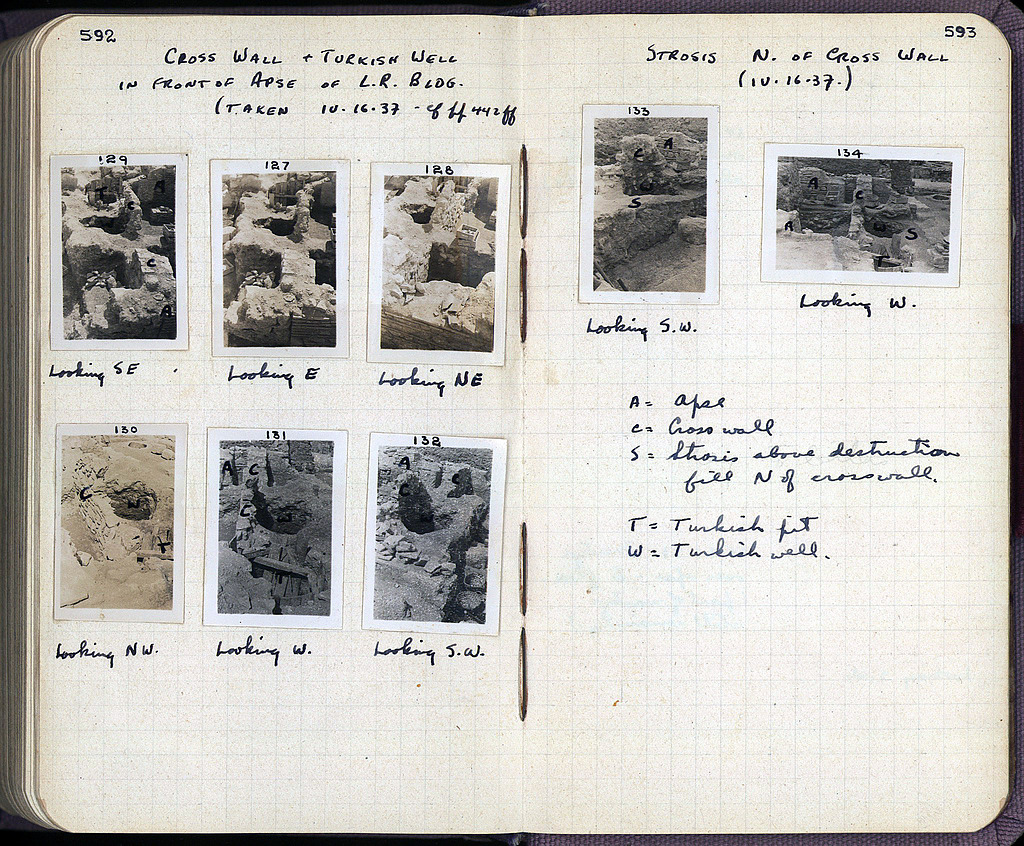 592
CROSS WALL + TURKISH WELL
IN FRONT OF APSE OF L.R. BLDG.
(TAKEN IV.16.37 - cf ff 442 ff
129
A
T
C
C
A
Looking SE
127
Looking E
128
Looking NE
130
C
W
T
Looking NW.
131
A C
C
W
Looking W.
132
A
C
C
W
Looking S.W.
593
STROSIS N. OF CROSS WALL
(IV.16.37.)
133
A
C
W
S
Looking S.W.
134
A
C
A
W
S
T
Looking W.
A = Apse
C = Cross wall
S = Strosis above destruction
fill N of crosswall.
T = Turkish pit
W = Turkish well.